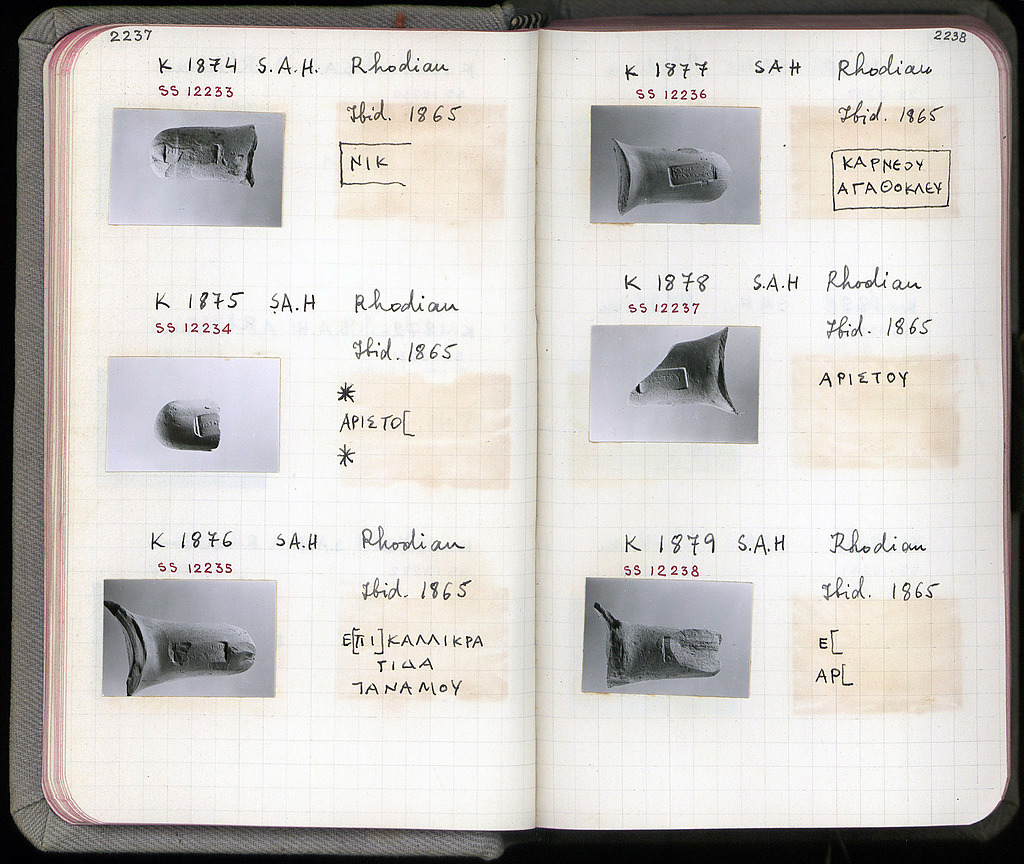 2237
K 1874 S.A.H. Rhodian
SS 12233
Ibid. 1865
ΝΙΚ
K 1875 S.A.H Rhodian
SS 12234
Ibid. 1865
*
ΑΡΙΣΤΟ[
*
K 1876 S.A.H Rhodian
SS 12235
Ibid. 1865
Ε[ΠΙ]ΚΑΛΛΙΚΡΑ
ΤΙΔΑ
ΠΑΝΑΜΟΥ
2238
K 1877 SAH Rhodian
SS 12236
Ibid. 1865
ΚΑΡΝΕΟΥ
ΑΓΑΘΟΚΛΕΥ
K 1878 S.A.H Rhodian
SS 12237
Ibid. 1865
ΑΡΙΣΤΟΥ
K 1879 S.A.H Rhodian
SS 12238
Ibid. 1865
Ε[
ΑΡ[